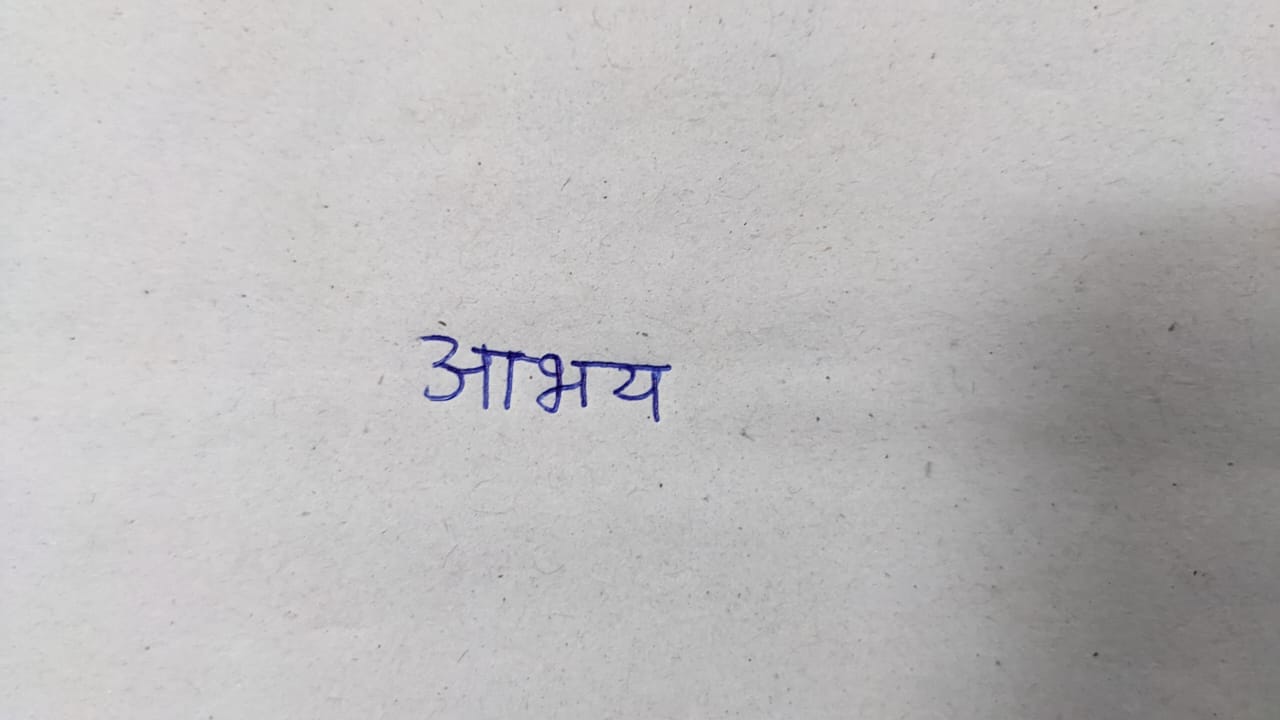 आभय